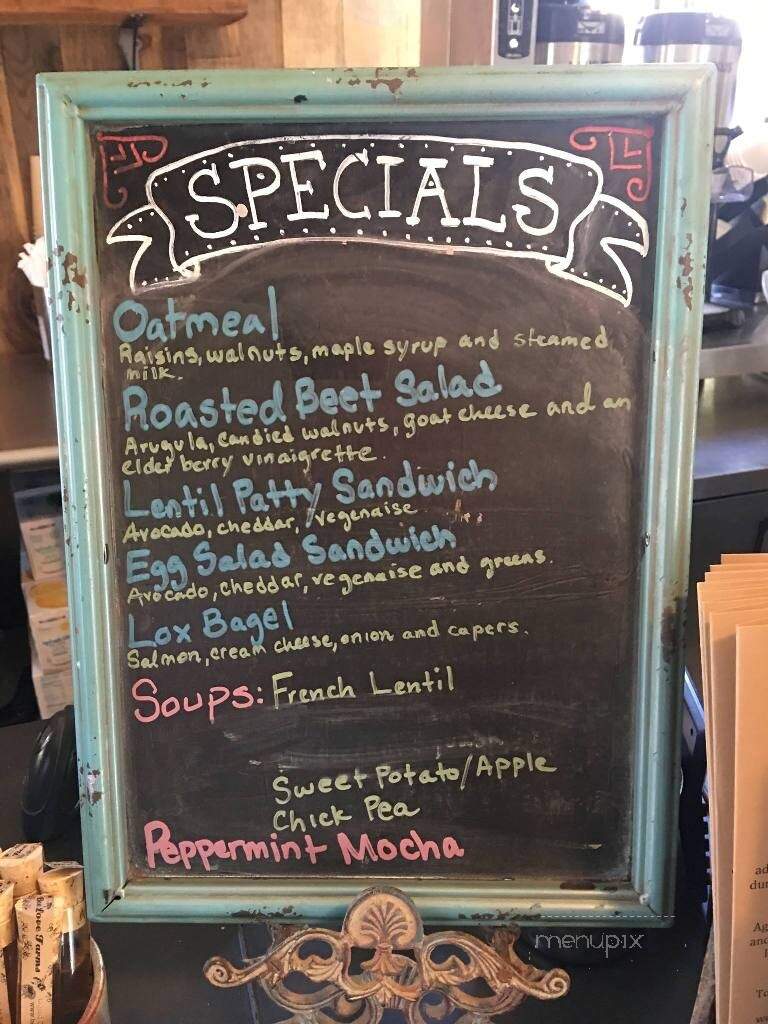 SPECIALS
Oatmeal
Raisins, walnuts, maple syrup and steamed
milk.
Roasted Beet Salad
Arugula, candied walnuts, goat cheese and an
elder berry vinaigrette.
Lentil Patty Sandwich
Avocado, cheddar, vegenaise
Egg Salad Sandwich
Avocado, cheddar, vegenaise and greens.
Lox Bagel
Salmon, cream cheese, onion and capers.
Soups: French Lentil
Sweet Potato/Apple
Chick Pea
Peppermint Mocha
menupix
Farms
ad
dur
Ag
and
To